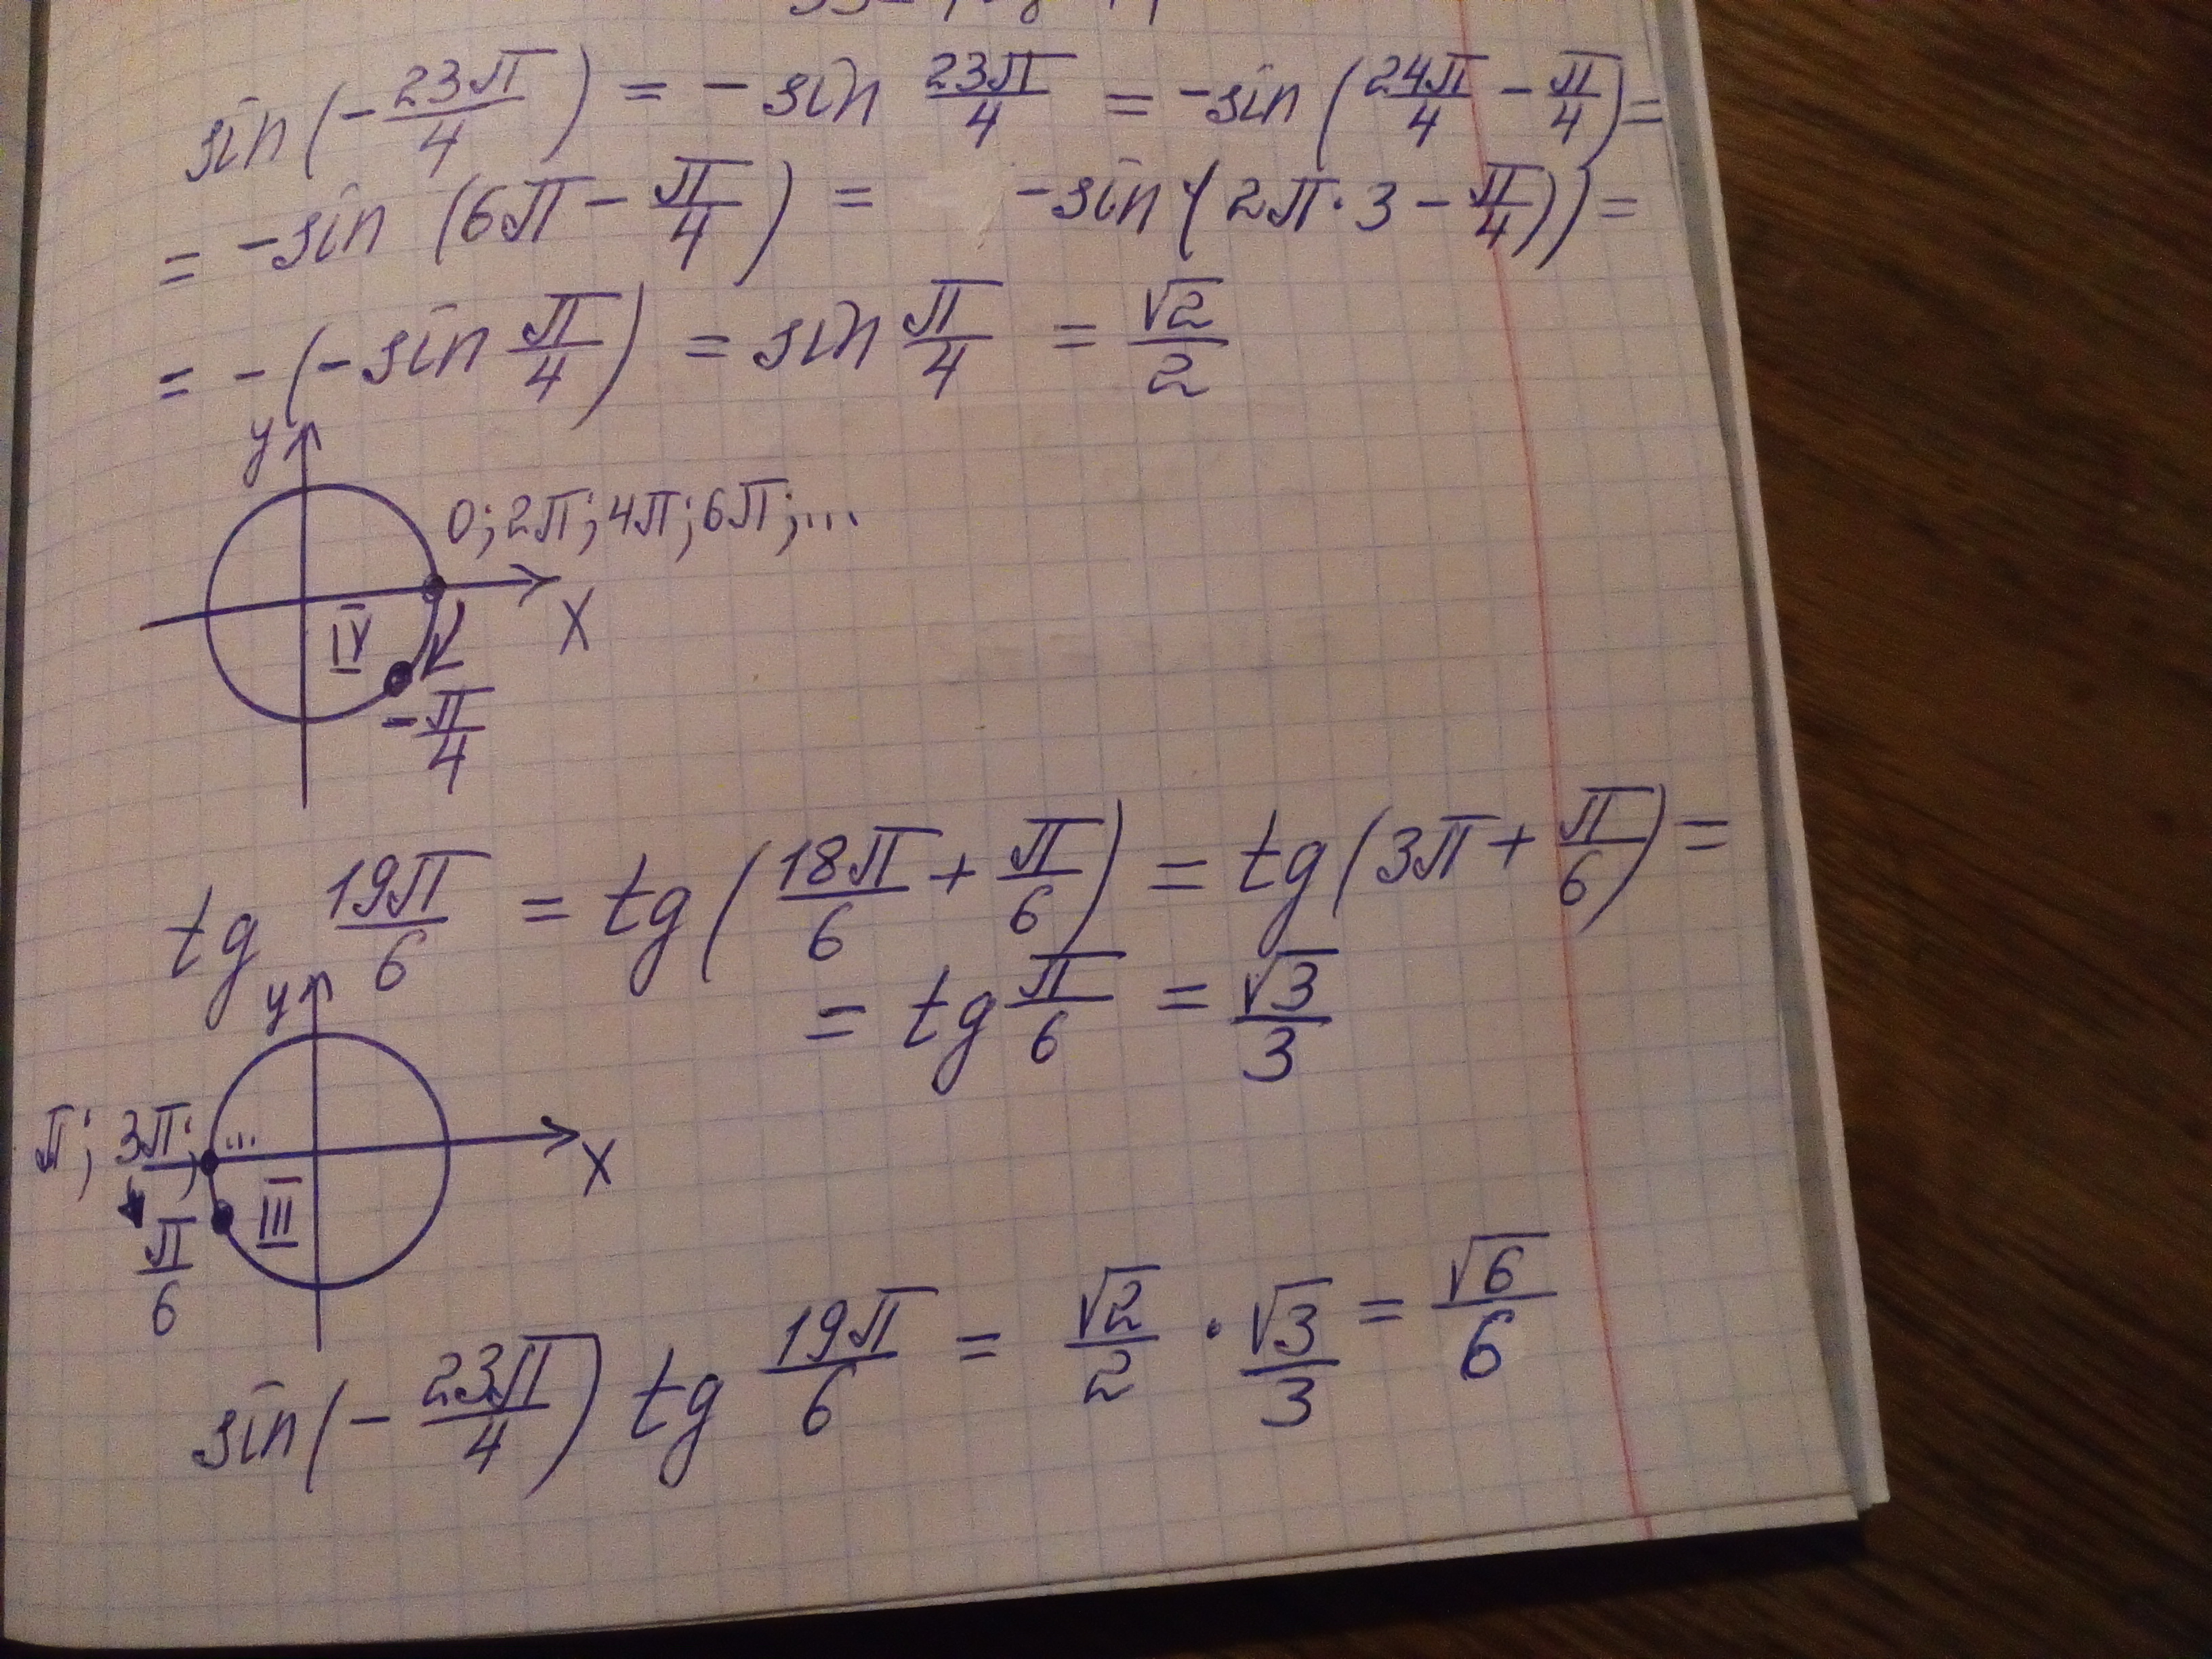 sin(-23π/4) = -sin 23π/4 = -sin(24π/4 - π/4) =
= -sin (6π - π/4) = -sin (2π·3 - π/4)) =
= -(-sin π/4) = sin π/4 = √2/2
y
0; 2π; 4π; 6π; ...
IV
X
-π/4
tg 19π/6 = tg(18π/6 + π/6) = tg(3π + π/6) =
= tg π/6 = √3/3
y
π; 3π; ...
X
III
π/6
sin(-23π/4) tg 19π/6 = √2/2 · √3/3 = √6/6